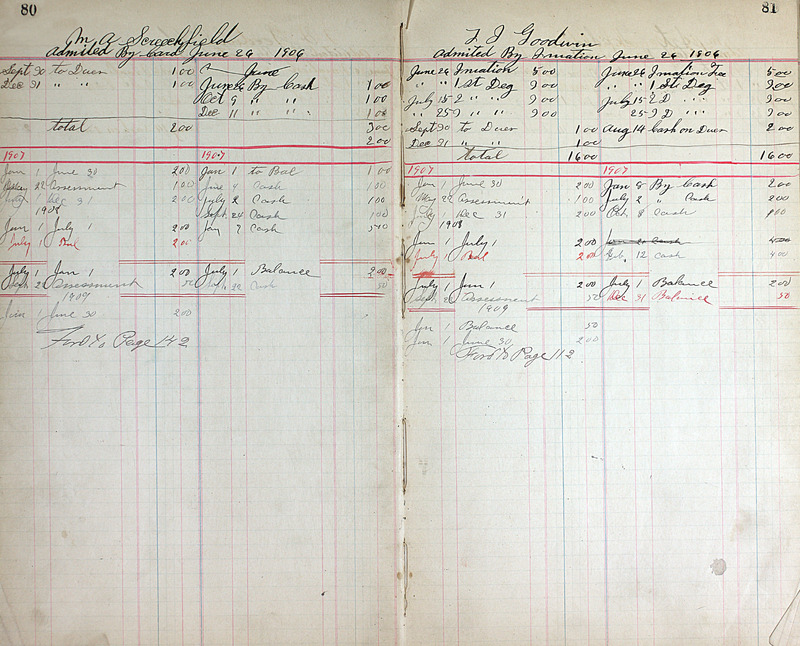 80
M. A. Screechfield
admited By Card June 26 1906
Sept 30 to Dues 1 00 June
Dec 31 " " 1 00 June 26 By Cash 1 00
Oct 9 " " 1 00
Dec 11 " " 1 00
total 2 00 3 00
2 00
1907 1907
Jan 1 June 30 2 00 Jan 1 to Bal 1 00
May 22 Assessment 1 00 June 4 Cash 1 00
July 1 Dec 31 2 00 July 2 Cash 1 00
1908 Sept 24 Cash 1 00
Jan 1 July 1 2 00 Jan 7 Cash
July 1 Bal 2 00
July 1 Jan 1 2 00 July 1 Balance 2 00
Sept 22 Assessment 50 22 Cash 50
1909
Jan 1 June 30 2 00
Ford to Page 142
81
T. J. Goodwin
admited By Initiation June 26 1906
June 26 Initiation 5 00 June 26 Initiation Fee 5 00
" " 1 St Deg 9 00 " " 1 St Deg 9 00
July 15 2 " " 9 00 July 15 2 D " " 9 00
" 25 3 D " " 9 00 " 25 3 D " " 9 00
Sept 30 to Dues 1 00 Aug 14 Cash on Dues 2 00
Dec 31 " " 1 00
total 16 00 16 00
1907 1907
Jan 1 June 30 2 00 Jan 8 By Cash 2 00
May 22 Assessment 1 00 July 2 " Cash 2 00
July 1 Dec 31 2 00 Oct 8 Cash
1908
Jan 1 July 1 2 00 Cash 4 00
July 1 Bal 2 00 Feb. 12 Cash 4 00
July 1 Jan 1 2 00 July 1 Balance 2 00
Sept 2 Assessment 50 Dec 31 Balance 50
1909
Jan 1 Balance 50
Jan 1 June 30 2 00
Ford to Page 112